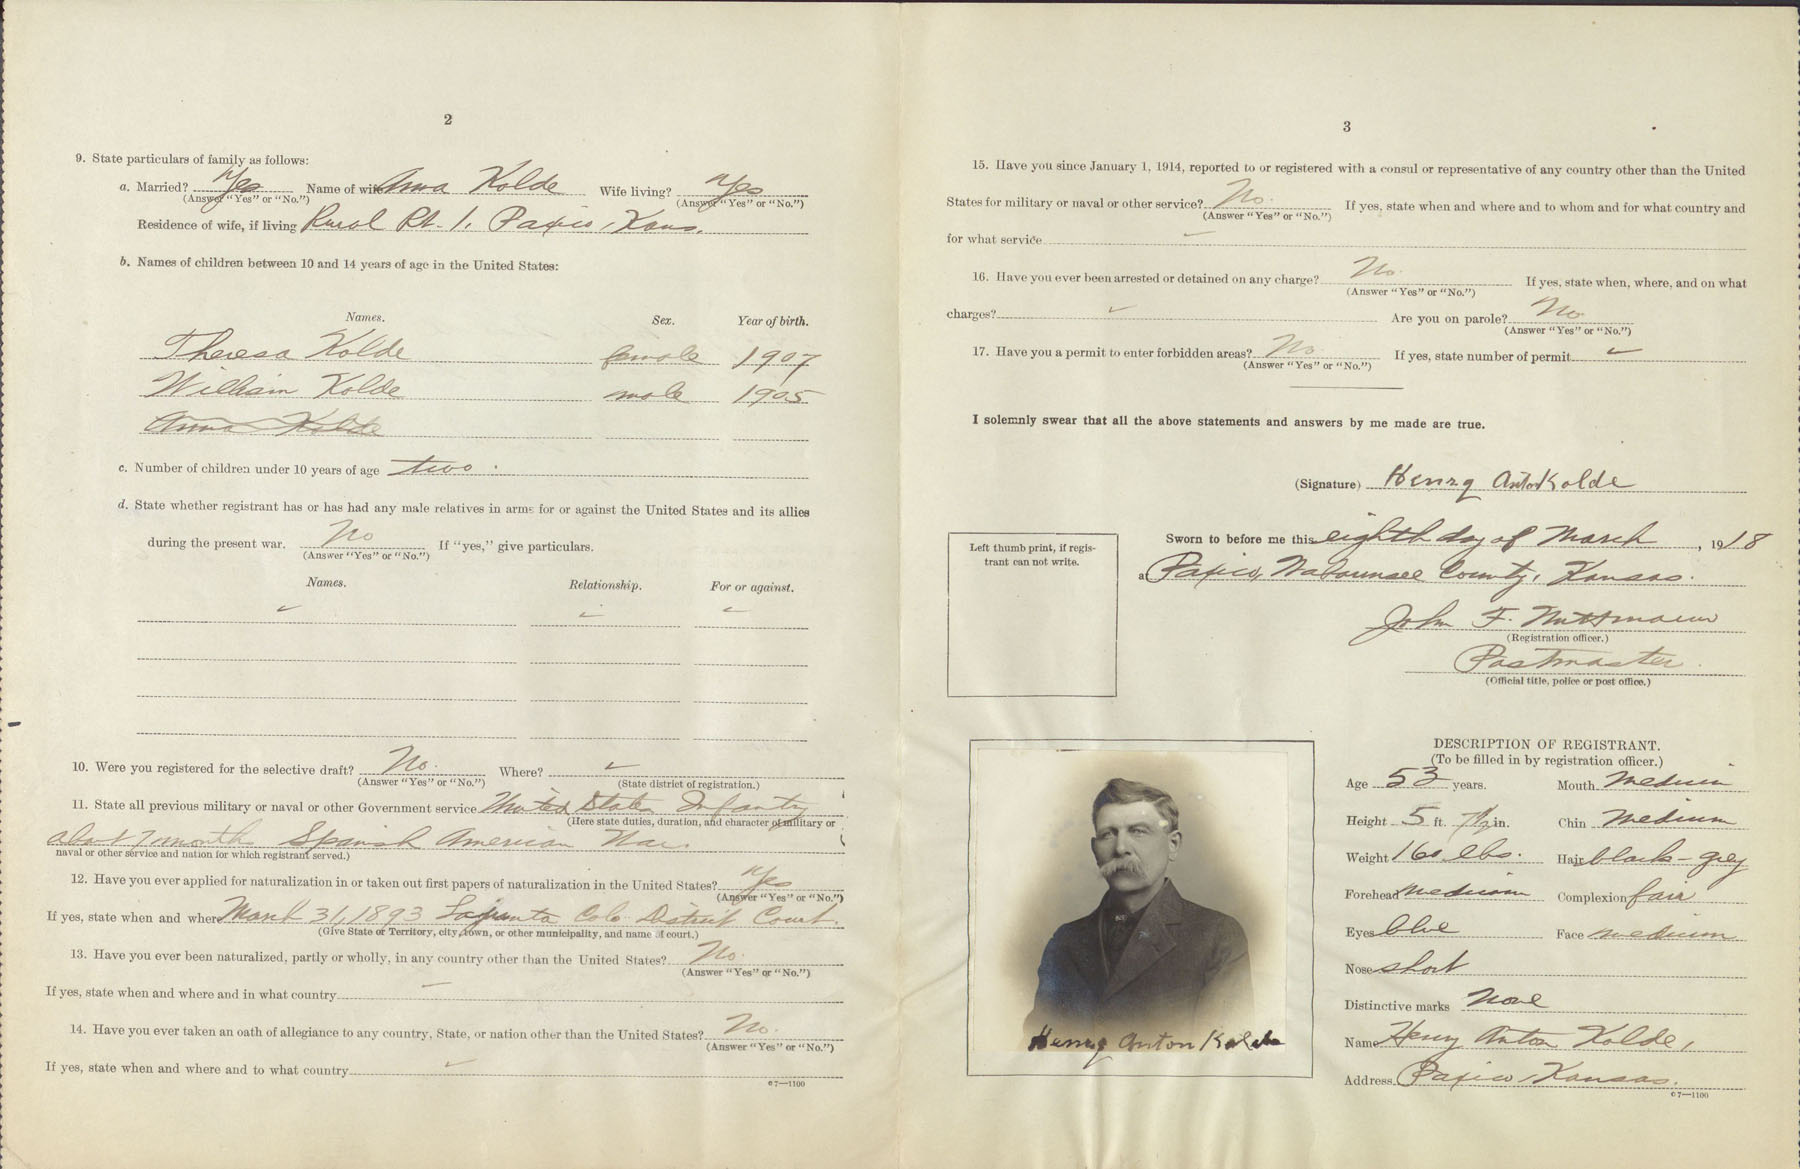 2
9. State particulars of family as follows:
a. Married? Yes Name of wife Anna Kolde Wife living? Yes
(Answer "Yes" or "No.") (Answer "Yes" or "No.")
Residence of wife, if living Rural Rt. 1, Paxico, Kans.
b. Names of children between 10 and 14 years of age in the United States:
Names. Sex. Year of birth.
Theresa Kolde female 1907
William Kolde male 1905
Anna Kolde
c. Number of children under 10 years of age two.
d. State whether registrant has or has had any male relatives in arms for or against the United States and its allies
during the present war. No If "yes," give particulars.
(Answer "Yes" or "No.")
Names. Relationship. For or against.
10. Were you registered for the selective draft? No. Where?
(Answer "Yes" or "No.") (State district of registration.)
11. State all previous military or naval or other Government service United States Infantry
(Here state duties, duration, and character of military or
about 7 months Spanish American War.
naval or other service and nation for which registrant served.)
12. Have you ever applied for naturalization in or taken out first papers of naturalization in the United States? Yes
(Answer "Yes" or "No.")
If yes, state when and where March 31, 1893 Lajunta Colo. District Court.
(Give State or Territory, city, town, or other municipality, and name of court.)
13. Have you ever been naturalized, partly or wholly, in any country other than the United States? No.
(Answer "Yes" or "No.")
If yes, state when and where and in what country
14. Have you ever taken an oath of allegiance to any country, State, or nation other than the United States? No.
(Answer "Yes" or "No.")
If yes, state when and where and to what country
c7—1100
3
15. Have you since January 1, 1914, reported to or registered with a consul or representative of any country other than the United
States for military or naval or other service? No. If yes, state when and where and to whom and for what country and
(Answer "Yes" or "No.")
for what service
16. Have you ever been arrested or detained on any charge? No. If yes, state when, where, and on what
(Answer "Yes" or "No.")
charges? Are you on parole? No
(Answer "Yes" or "No.")
17. Have you a permit to enter forbidden areas? No If yes, state number of permit
(Answer "Yes" or "No.")
I solemnly swear that all the above statements and answers by me made are true.
(Signature) Henry Anton Kolde
Left thumb print, if regis-
trant can not write.
Sworn to before me this eighth day of March, 1918
at Paxico, Wabaunsee County, Kansas.
John F.
(Registration officer.)
Postmaster.
(Official title, police or post office.)
Henry Anton Kolde
DESCRIPTION OF REGISTRANT.
(To be filled in by registration officer.)
Age 53 years. Mouth medium
Height 5 ft. 7½ in. Chin medium
Weight 160 lbs. Hair black-grey
Forehead medium Complexion fair
Eyes blue Face medium
Nose short
Distinctive marks None
Name Henry Anton Kolde,
Address Paxico, Kansas.
c7—1100